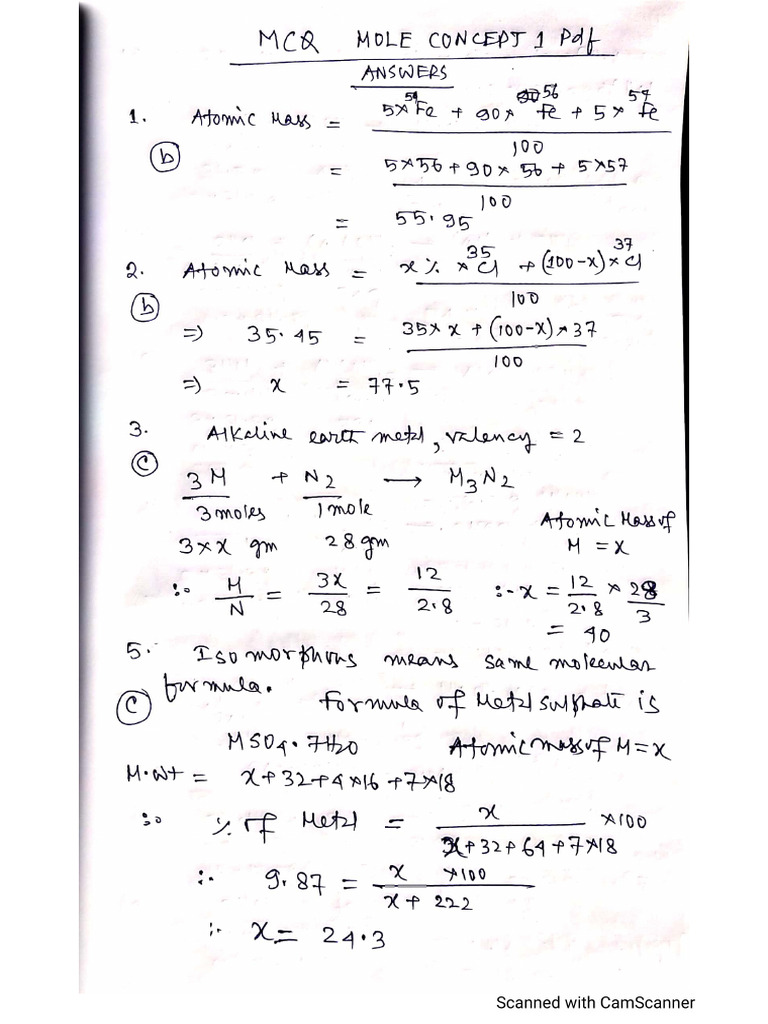 MCQ MOLE CONCEPT 1 Pdf
ANSWERS
1. Atomic Mass = 5×⁵⁴Fe + 90×⁵⁶Fe + 5×⁵⁷Fe / 100
(b) = 5×56 + 90×56 + 5×57 / 100
= 55.95
2. Atomic Mass = x% ×³⁵Cl + (100-x)×³⁷Cl / 100
(b)
=) 35.45 = 35×x + (100-x)×37 / 100
=) x = 77.5
3. Alkaline earth metal, valency = 2
(C) 3M + N2 → M3N2
3 moles 1 mole
3×x gm 28 gm
Atomic Mass of
M = x
∴ M/N = 3x/28 = 12/2.8 ∴ x = 12/2.8 × 28/3
= 40
5. Isomorphous means same molecular
(C) formula. Formula of Metal sulphate is
MSO4.7H2O Atomic mass of M = x
M.wt = x+32+4×16+7×18
∴ % of Metal = x / x+32+64+7×18 ×100
∴ 9.87 = x ×100 / x+222
∴ x = 24.3
Scanned with CamScanner